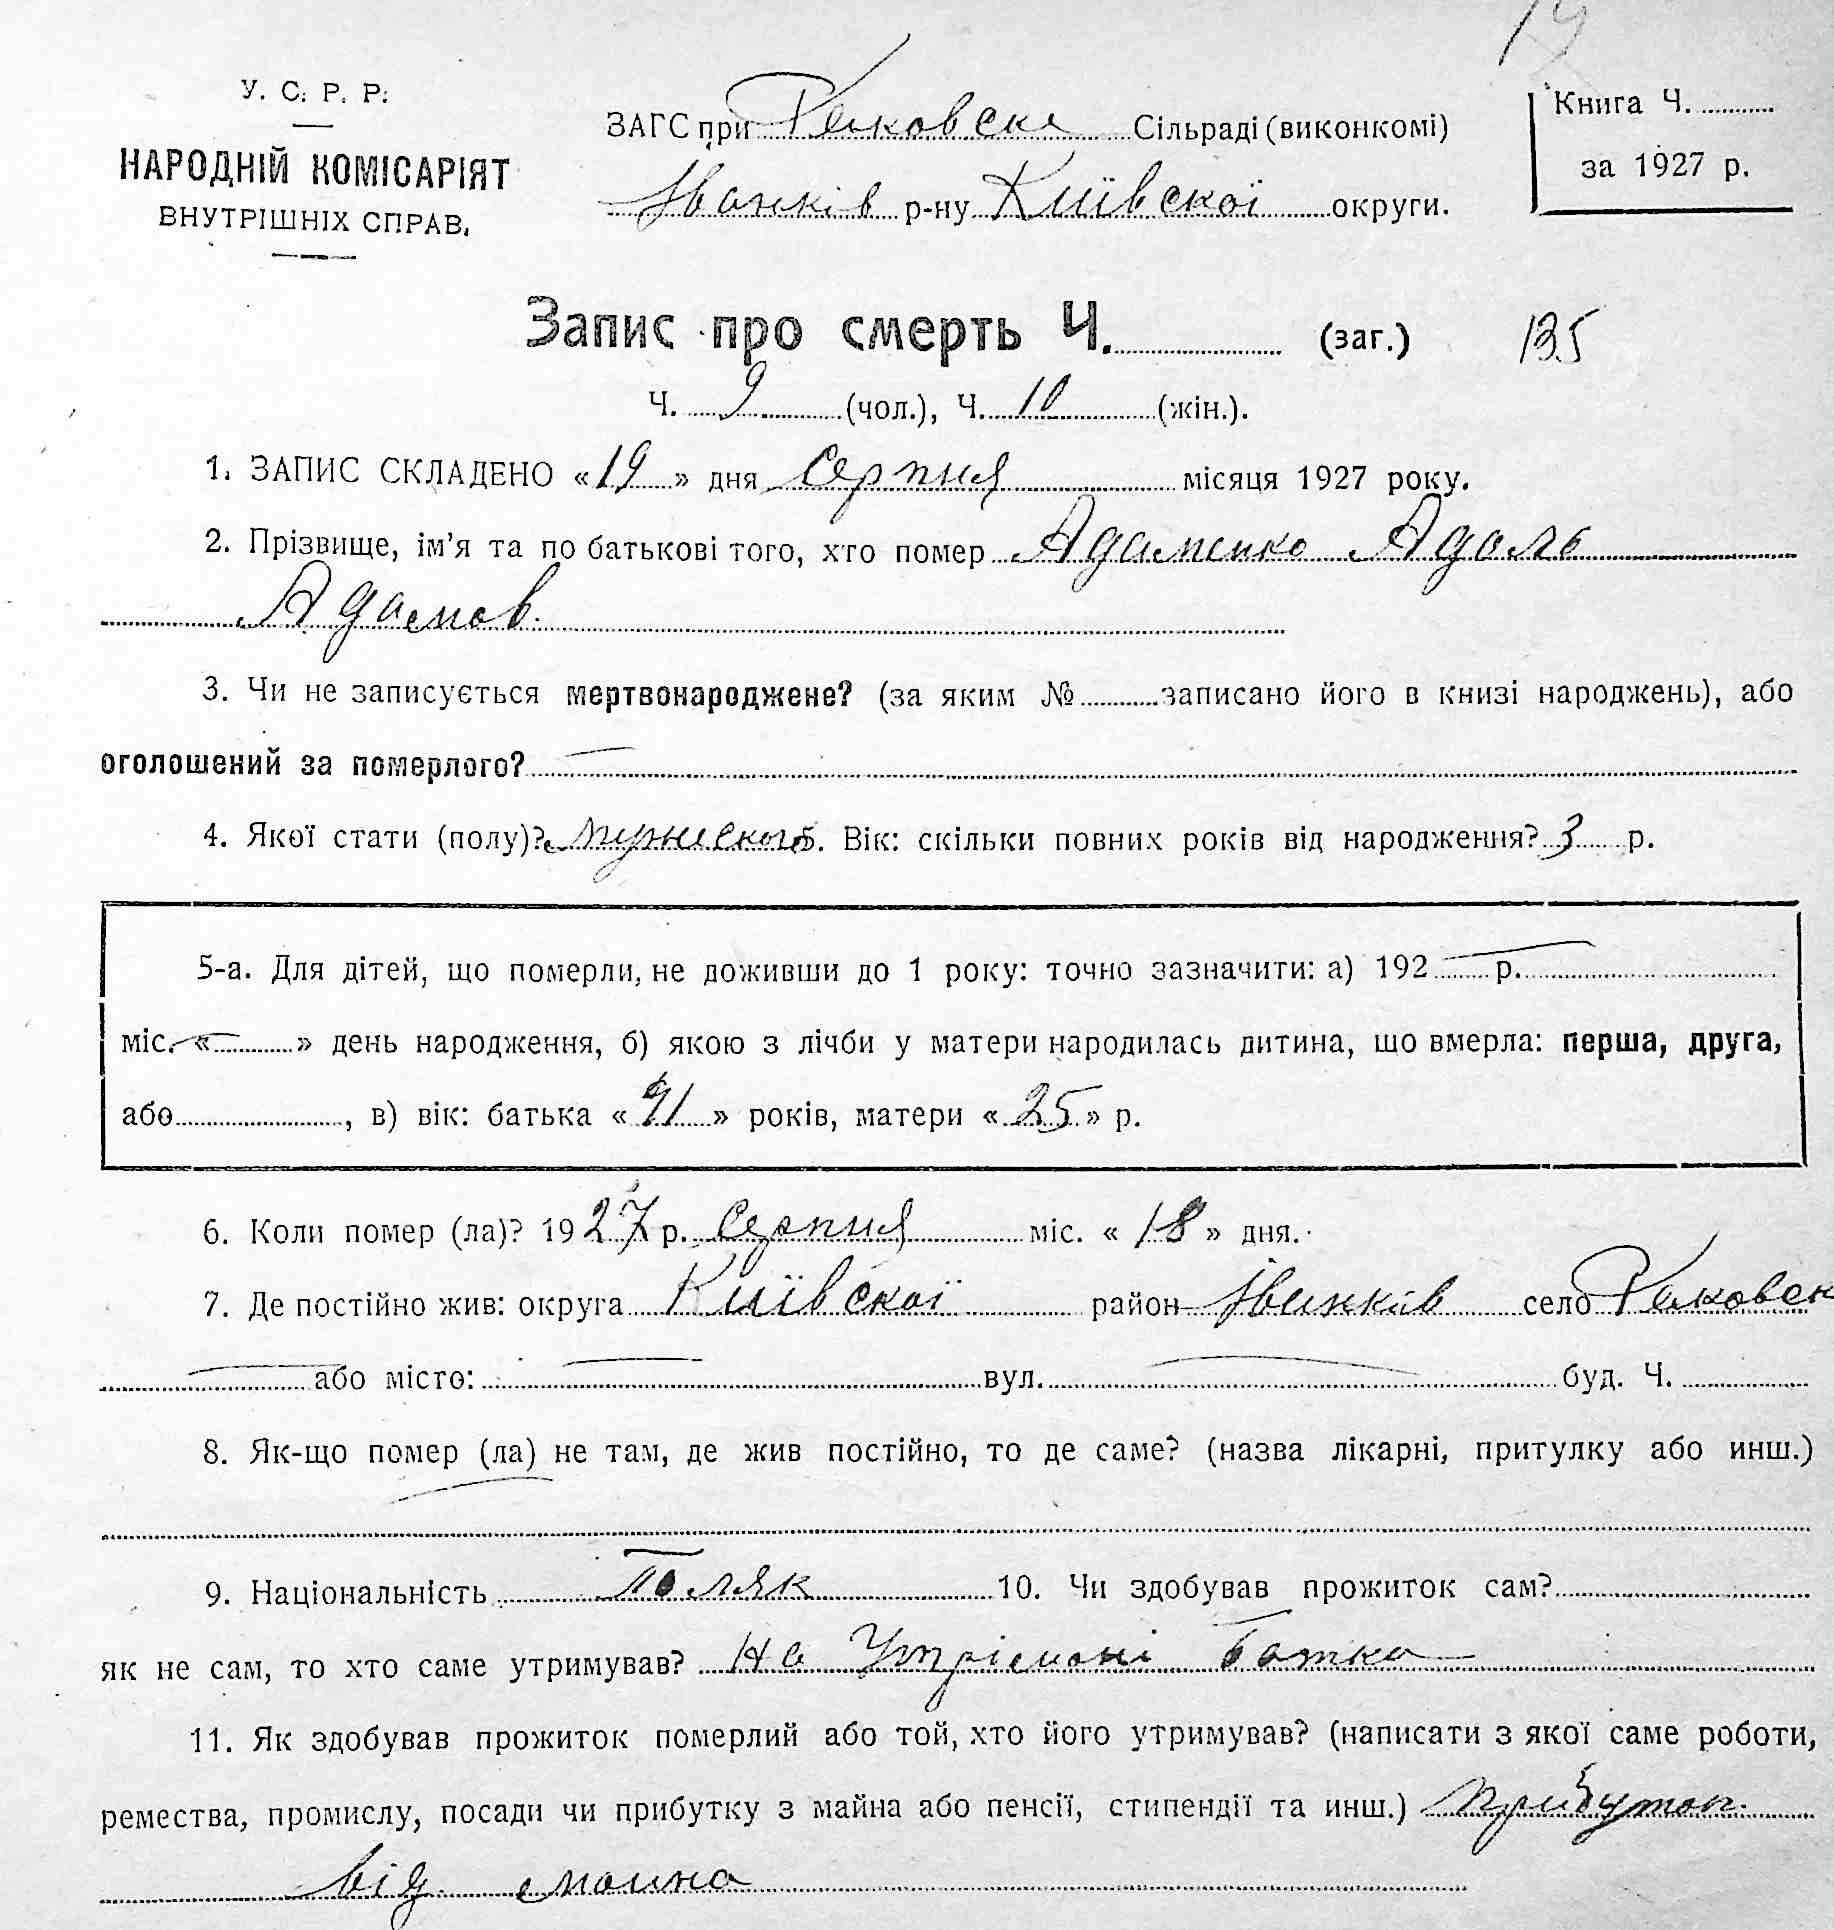 19
У. С. Р. Р.
НАРОДНІЙ КОМІСАРІЯТ
ВНУТРІШНІХ СПРАВ.
ЗАГС при Раковска Сільраді (виконкомі)
Іванків р-ну Київскої округи.
Книга Ч.
за 1927 р.
Запис про смерть Ч. (заг.) 135
Ч. 9 (чол.), Ч. 10 (жін.).
1. ЗАПИС СКЛАДЕНО «19» дня Серпня місяця 1927 року.
2. Прізвище, ім'я та по батькові того, хто помер Адаменко Адоль
Адамов.
3. Чи не записується мертвонароджене? (за яким № записано його в книзі народжень), або
оголошений за померлого? —
4. Якої стати (полу)? мужеского 5. Вік: скільки повних років від народження? 3 р.
5-а. Для дітей, що померли, не доживши до 1 року: точно зазначити: а) 192 — р.
міс. « — » день народження, б) якою з лічби у матери народилась дитина, що вмерла: перша, друга,
або , в) вік: батька «31» років, матери «25» р.
6. Коли помер (ла)? 1927 р. Серпня міс. «18» дня.
7. Де постійно жив: округа Київскої район Іванків село Раковск
— або місто: — вул. — буд. Ч.
8. Як-що помер (ла) не там, де жив постійно, то де саме? (назва лікарні, притулку або инш.)
—
9. Національність Поляк 10. Чи здобував прожиток сам?
як не сам, то хто саме утримував? На Утрімані батка
11. Як здобував прожиток померлий або той, хто його утримував? (написати з якої саме роботи,
ремества, промислу, посади чи прибутку з майна або пенсії, стипендії та инш.) прибуток
від маина